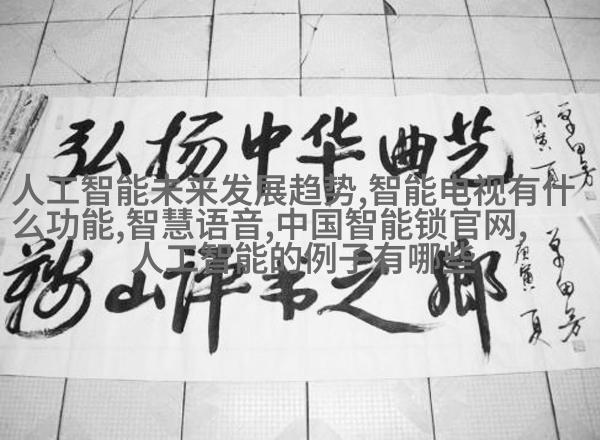 弘扬中华曲艺
庚寅 夏
单田芳
人工智能未来发展趋势,智能电视有什
么功能,智慧语音,中国智能锁官网,
人工智能的例子有哪些
鞍山评书之鄉
庚寅 夏
单田芳